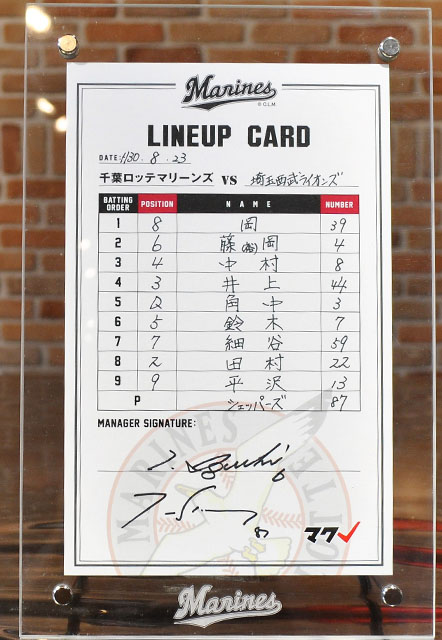 Marines
© C.L.M.
LINEUP CARD
DATE: H30. 8. 23
千葉ロッテマリーンズ VS 埼玉西武ライオンズ
BATTING ORDER POSITION NAME NUMBER
1 8 岡 39
2 6 藤(裕)岡 4
3 4 中村 8
4 3 井上 44
5 D 角中 3
6 5 鈴木 7
7 7 細谷 59
8 2 田村 22
9 9 平沢 13
P シェッパーズ 87
MANAGER SIGNATURE:
6
87
マク
MARINES
Marines